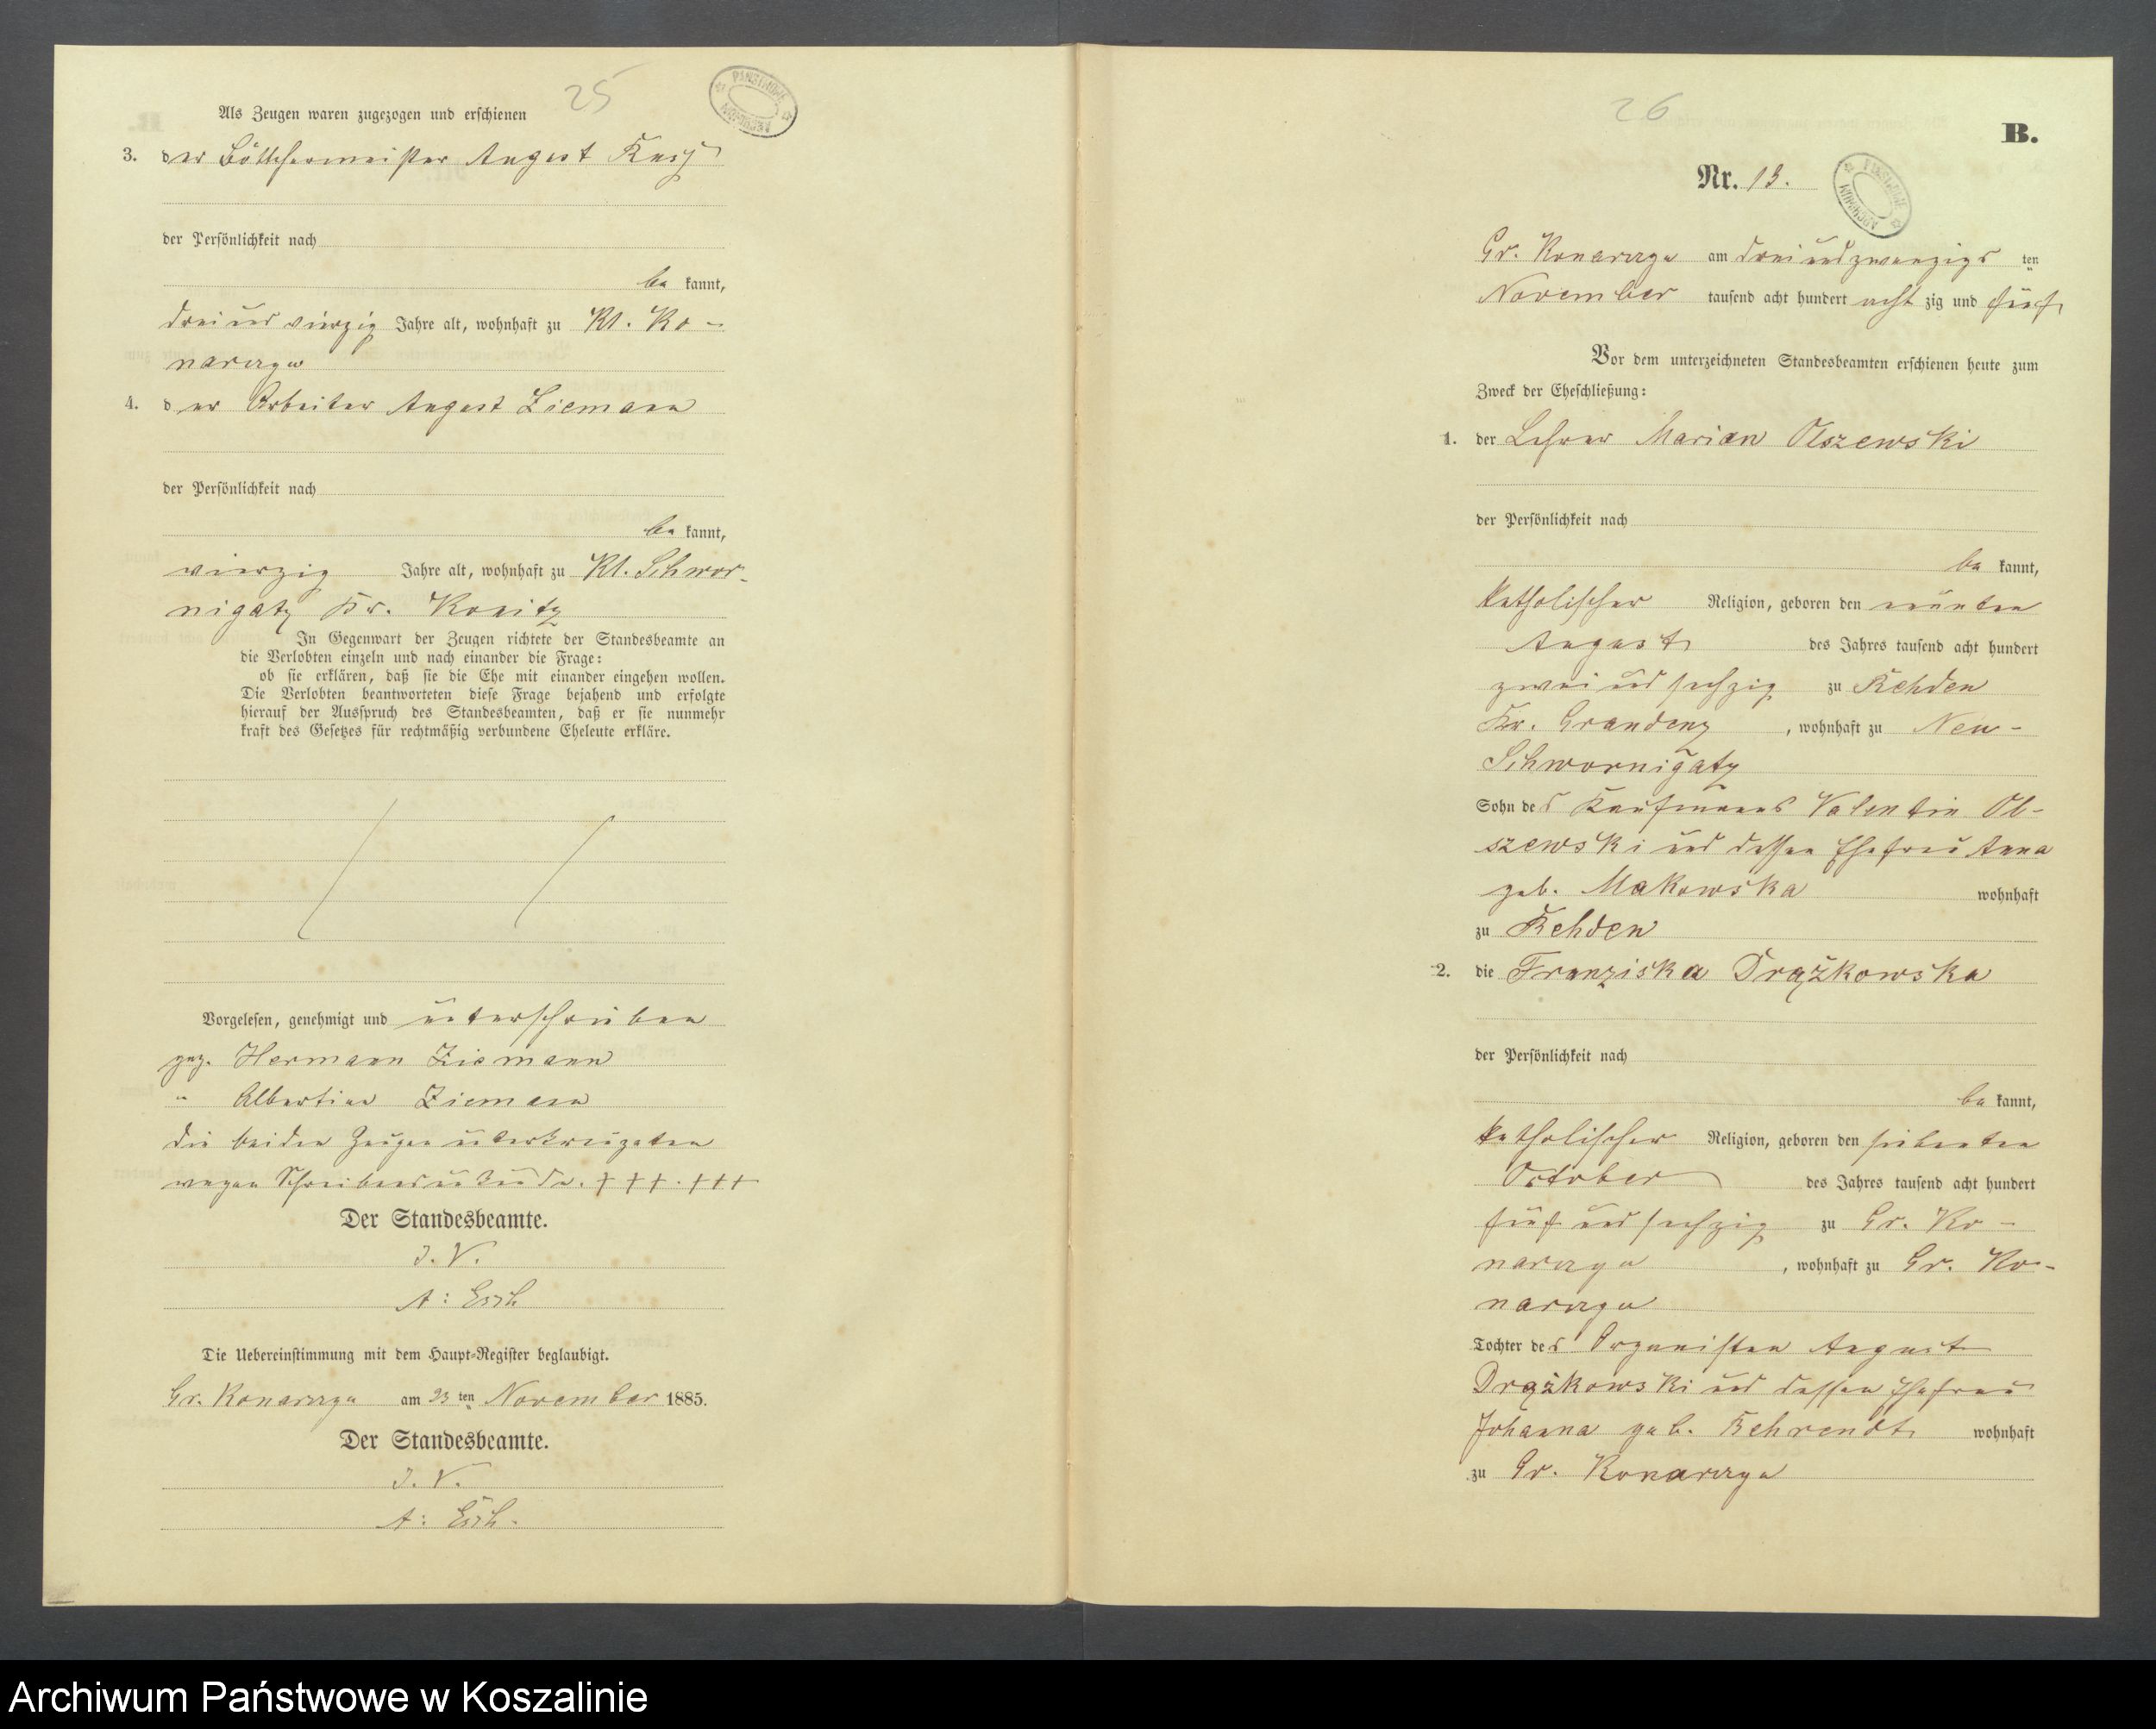 25
Als Zeugen waren zugezogen und erschienen
3. der Böttchermeister August
der Persönlichkeit nach
be kannt,
dreiundvierzig Jahre alt, wohnhaft zu Kl. Ko-
narczyn
4. der Arbeiter August Ziemann
der Persönlichkeit nach
be kannt,
vierzig Jahre alt, wohnhaft zu Kl. Schwor-
nigatz Kr. Konitz
In Gegenwart der Zeugen richtete der Standesbeamte an
die Verlobten einzeln und nach einander die Frage:
ob sie erklären, daß sie die Ehe mit einander eingehen wollen.
Die Verlobten beantworteten diese Frage bejahend und erfolgte
hierauf der Ausspruch des Standesbeamten, daß er sie nunmehr
kraft des Gesetzes für rechtmäßig verbundene Eheleute erkläre.
Vorgelesen, genehmigt und unterschrieben
gez. Hermann Ziemann
" Albertine Ziemann
die beiden Zeugen unterkreuzten
wegen Schreibensunkunde. +++. +++
Der Standesbeamte.
I. V.
A:
Die Uebereinstimmung mit dem Haupt-Register beglaubigt.
Gr. Konarczyn am 23 ten November 1885.
Der Standesbeamte.
I. V.
A:
26
B.
Nr. 13.
Gr. Konarczyn am dreiundzwanzigs ten
November tausend acht hundert acht zig und fünf
Vor dem unterzeichneten Standesbeamten erschienen heute zum
Zweck der Eheschließung:
1. der Lehrer Marian Olszewski
der Persönlichkeit nach
be kannt,
katholischer Religion, geboren den neunten
August des Jahres tausend acht hundert
zwei und sechzig zu Rehden
Kr. Graudenz, wohnhaft zu Neu-
Schwornigatz
Sohn des Kaufmanns Valentin Ol-
szewski und dessen Ehefrau Anna
geb. Makowska wohnhaft
zu Rehden
2. die Franziska Drążkowska
der Persönlichkeit nach
be kannt,
katholischer Religion, geboren den siebenten
October des Jahres tausend acht hundert
fünf und sechzig zu Gr. Ko-
narczyn, wohnhaft zu Gr. Ko-
narczyn
Tochter des Organisten August
Drążkowski und dessen Ehefrau
Johanna geb. Behrendt wohnhaft
zu Gr. Konarczyn
Archiwum Państwowe w Koszalinie